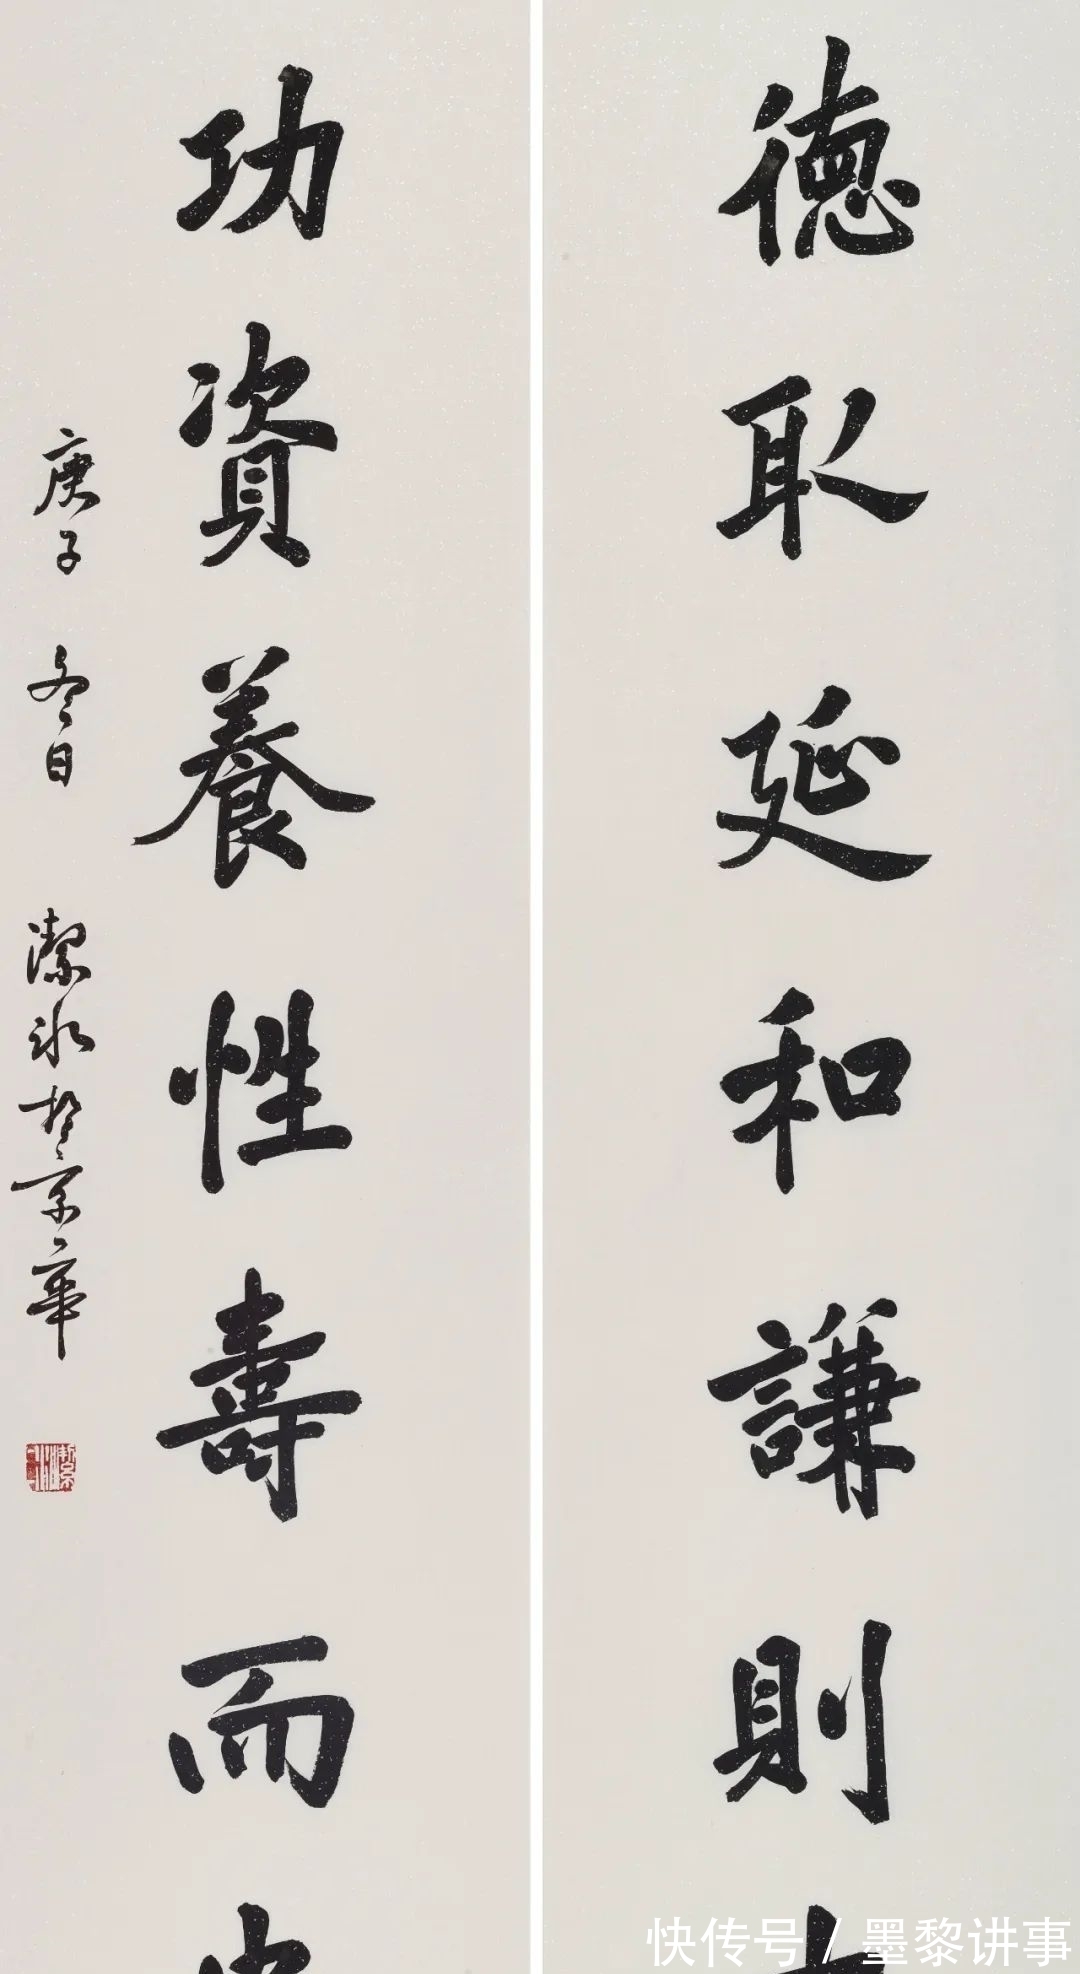 德取延和謙則
功資養性壽而
庚子 冬日 潔冰於京華
快传号 / 墨黎讲事